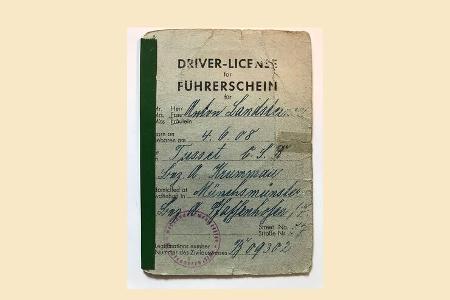 DRIVER-LICENSE
for
FÜHRERSCHEIN
für
Mr. Herr Anton
Mrs. Frau
Miss Fräulein
born on
geboren am 4.6.08
Tusset C.S.R.
Bez. A. Krummau
domiciled at
wohnhaft in Münchsmünster
Bez. A. Pfaffenhofen
Street No.
Straße Nr.
Legitimations number
Nummer des Zivilausweises 09302